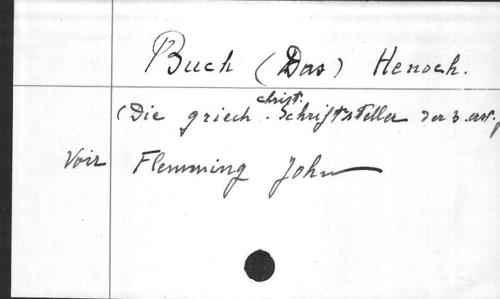 Buch (Das) Henoch.
(Die griech. christ. Schriftsteller der 3. erst.
Voir Flemming Joh